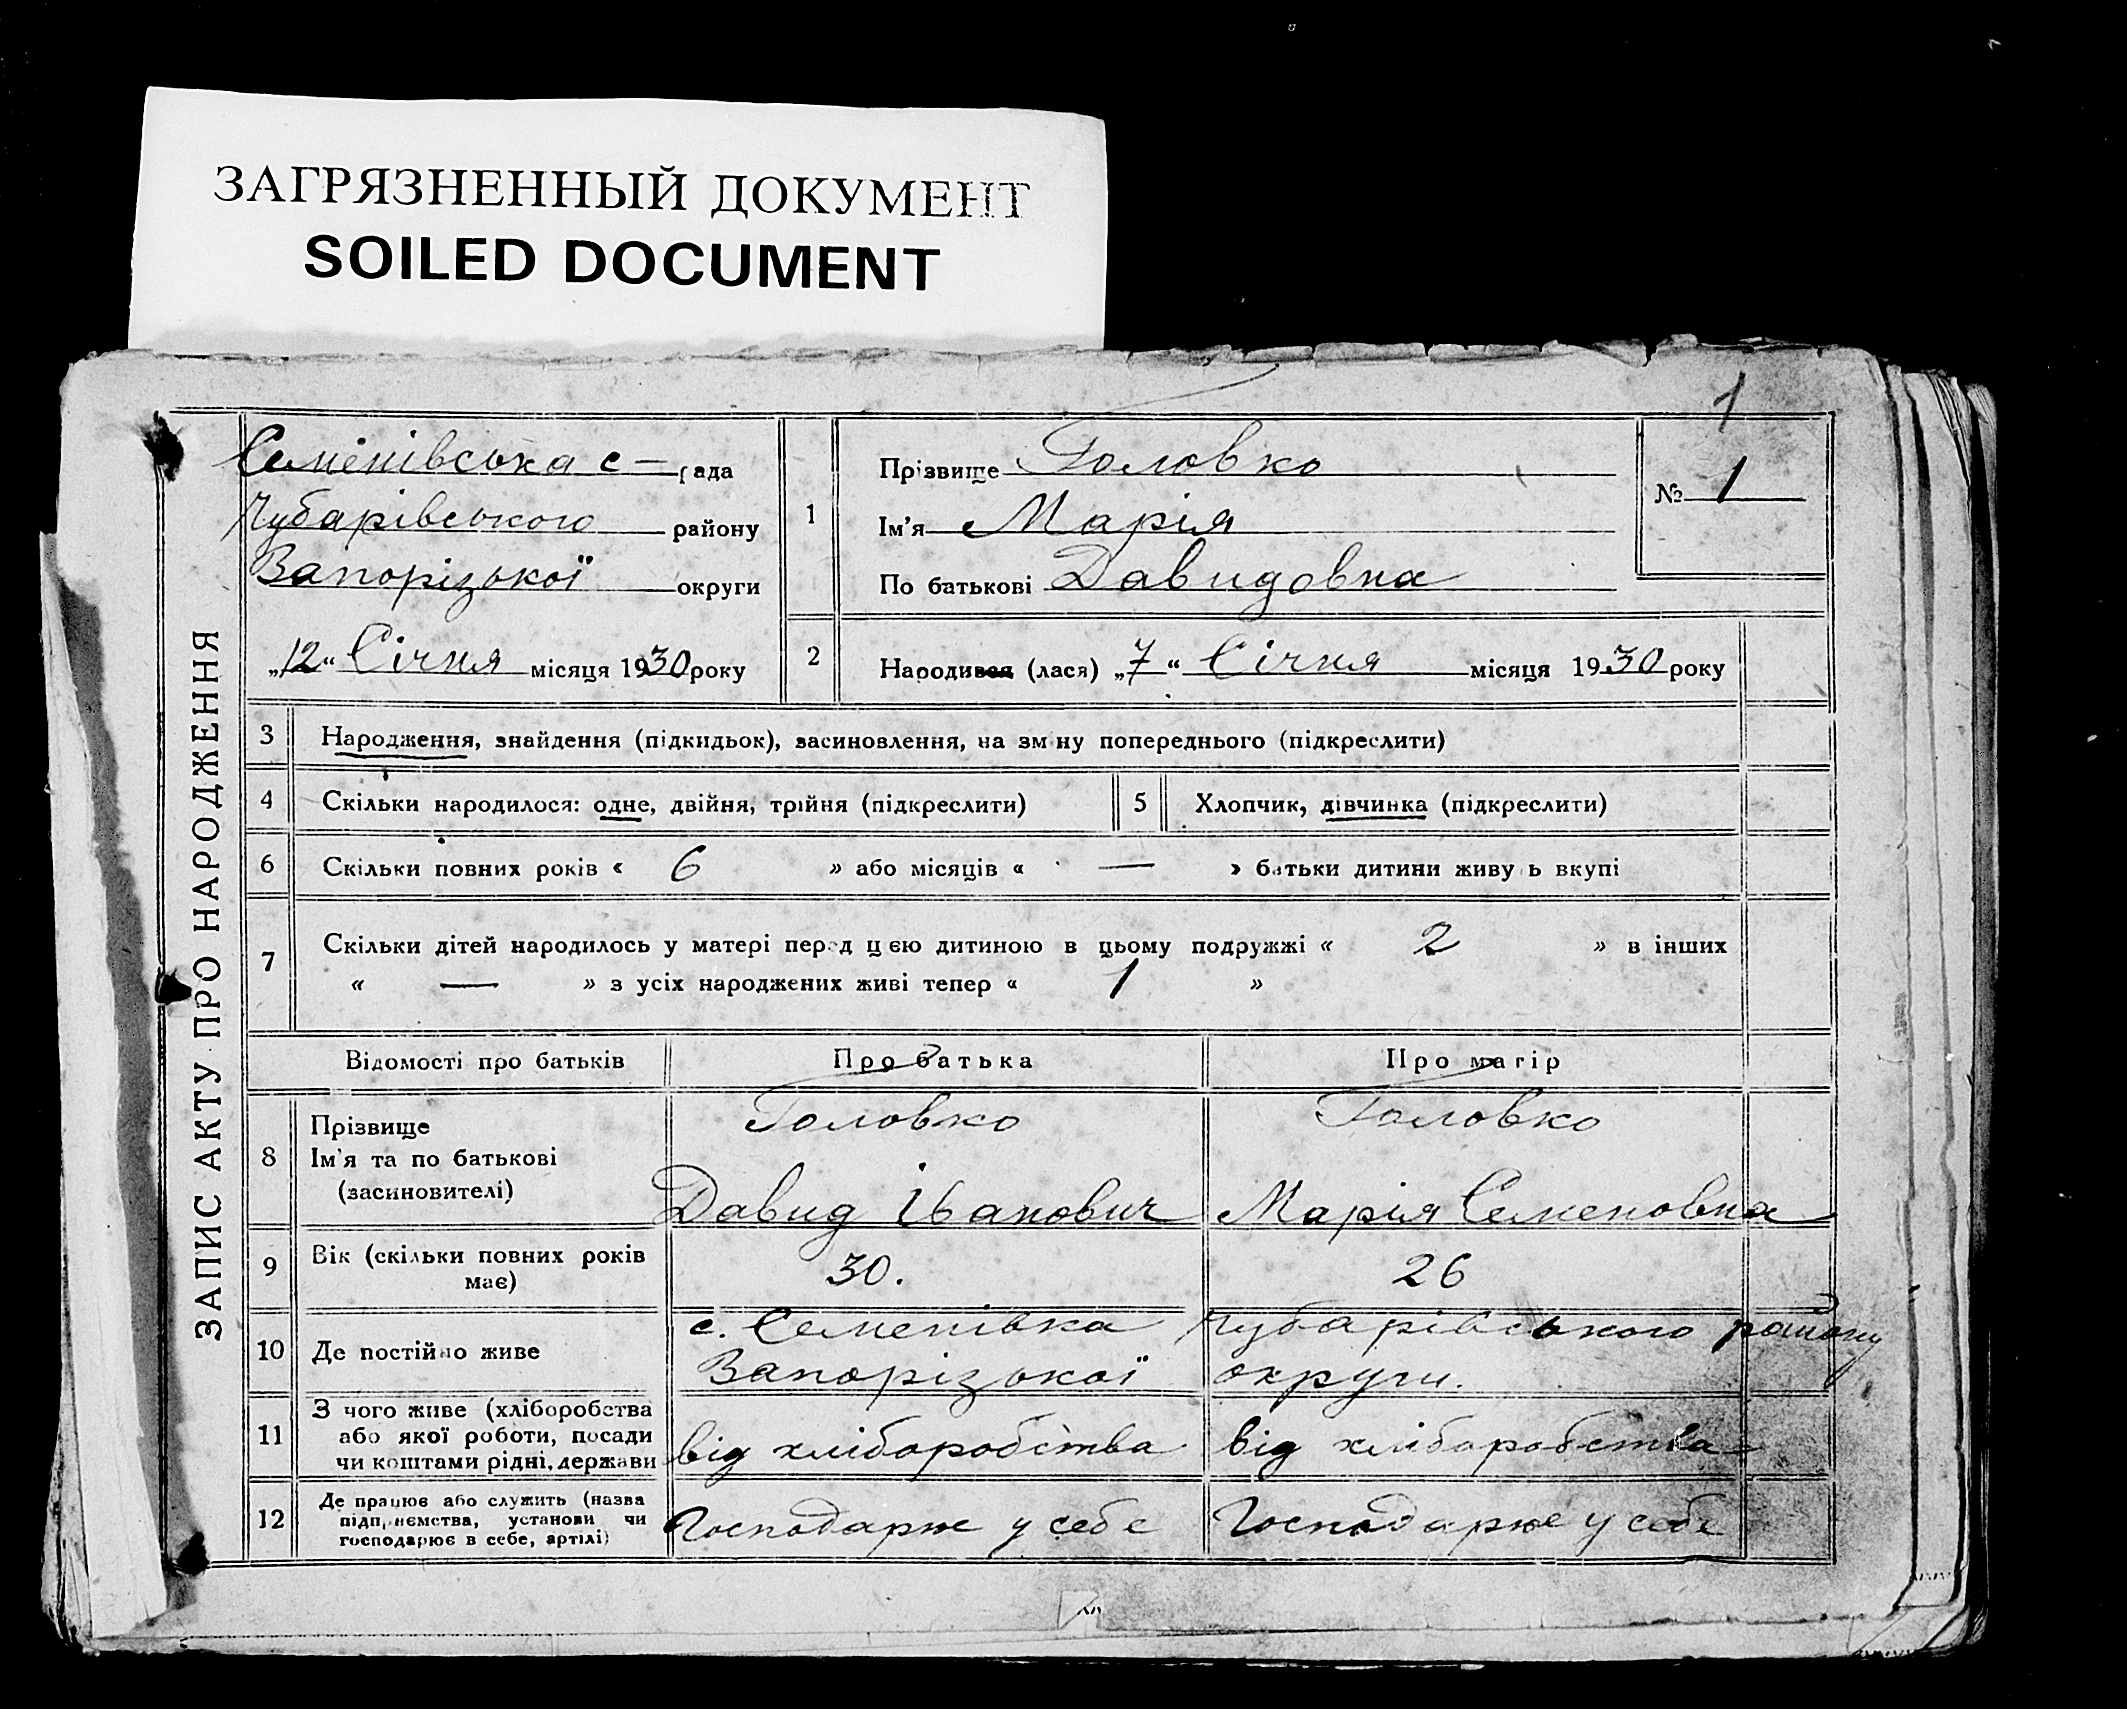 ЗАГРЯЗНЕННЫЙ ДОКУМЕНТ
SOILED DOCUMENT
1
ЗАПИС АКТУ ПРО НАРОДЖЕННЯ
Семенівська с – рада
Чубарівського району
Запорізької округи
„12“ Січня місяця 1930 року
1
Прізвище Головко
Ім'я Марія
По батькові Давидовна
№ 1
2
Народився (лася) „7“ Січня місяця 1930 року
3 Народження, знайдення (підкидьок), засиновлення, на зміну попереднього (підкреслити)
4 Скільки народилося: одне, двійня, трійня (підкреслити) 5 Хлопчик, дівчинка (підкреслити)
6 Скільки повних років « 6 » або місяців « — » батьки дитини живуть вкупі
7 Скільки дітей народилось у матері перед цією дитиною в цьому подружжі « 2 » в інших
« — » з усіх народжених живі тепер « 1 »
Відомості про батьків Про батька Про матір
8 Прізвище Головко Головко
Ім'я та по батькові
(засиновителі) Давид Іванович Марія Семеновна
9 Вік (скільки повних років
має) 30. 26
10 Де постійно живе с. Семенівка Чубарівського району
Запорізької округи.
11 З чого живе (хліборобства
або якої роботи, посади
чи коштами рідні, держави від хліборобства від хліборобства
12 Де працює або служить (назва
підприємства, установи чи
господарює в себе, артілі) Господарює у себе Господарює у себе